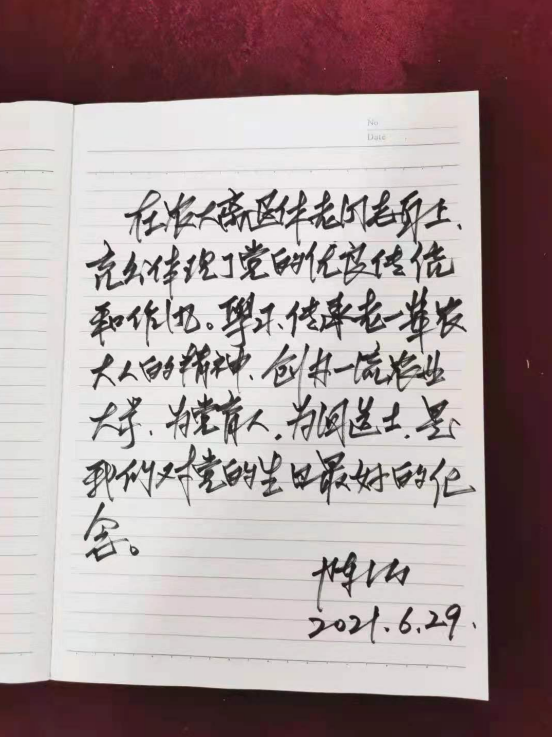 No
Date
在农大离退休老同志身上、
充分体现了党的优良传统
和作风。學习、传承老一辈农
大人的精神、创办一流农业
大学、为党育人、为国造士、是
我们对党的生日最好的纪
念。
2021.6.29.